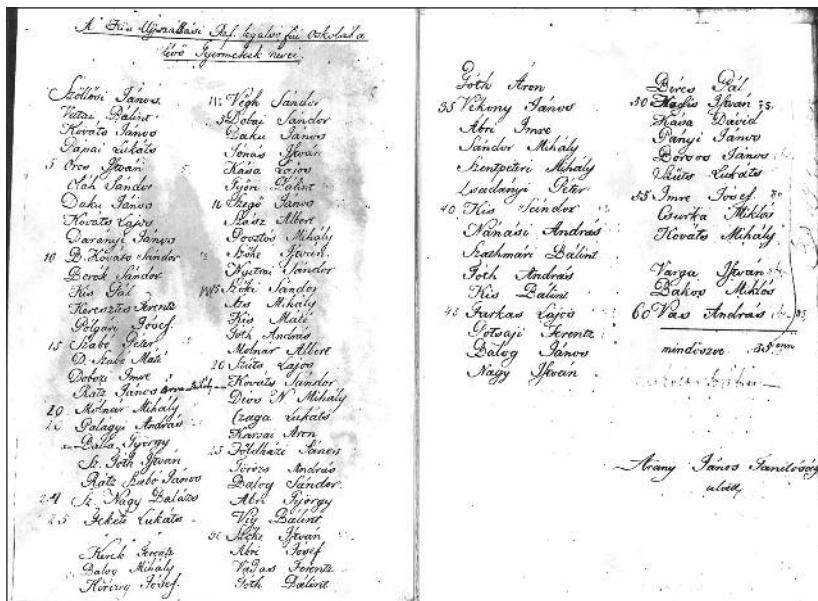 A Kis Ujszállási Ref. legalsó fiu oskolába
lévő Gyermekek nevei.
Szöllősi János
Vatai Bálint
Kováts János
Pápai Lukáts
5 Oros István
Oláh Sándor
Daku János
Kováts Lajos
Darányi János
10 B. Kováts Sándor
Berók Sándor
Kis Pál
Keresztes Ferentz
Polgári Jósef
15 Szabó Péter
D. Szabó Máté
Dobozi Imre
Rátz János
20 Molnár Mihály
Palágyi András
Balla György
Sz. Tóth István
Rátz Szabó János
24 Sz. Nagy Balázs
25 Fekete Lukáts
Kerek Ferentz
Balog Mihály
Jósef
Végh Sándor
5 Dobai Sándor
Daku János
Jónás István
Kása Lajos
Győri Bálint
10 Szegő János
Szász Albert
Posztós Mihály
Szőke István
Nyitrai Sándor
15 Szőki Sándor
Ats Mihály
Kis Máté
Tóth András
Molnár Albert
20 Szűts Lajos
Kováts Sándor
N Mihály
Czaga Lukáts
Karvai Áron
25 Földházi János
Törözs András
Balog Sándor
Ábri György
Víg Bálint
30 Szőke István
Ábri Jósef
Vadas Ferentz
Tóth Bálint
Tóth Áron
35 Vékony János
Ábri Imre
Sándor Mihály
Szentpéteri Mihály
Csadányi Péter
40 Kis Sándor
Nánási András
Szathmári Bálint
Tóth András
Kis Bálint
45 Farkas Lajos
Gotsaji Ferentz
Balog János
Nagy István
Béres Pál
50 István 75.
Kása Dávid
Pányi János
Boros János
Szűts Lukáts
55 Imre Jósef
Csurka Miklós
Kováts Mihály
Varga István
Bakos Miklós
60 Vas András
mindöszve 85
Arany János Tanitóság
alatt